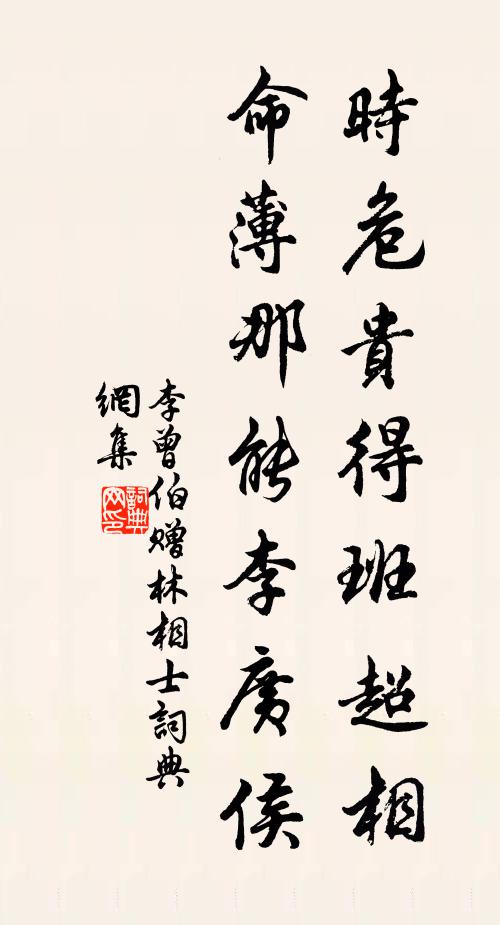 時危貴得班超相
命薄那能李廣侯
李曾伯贈林相士詞典
網集
詞典
网印